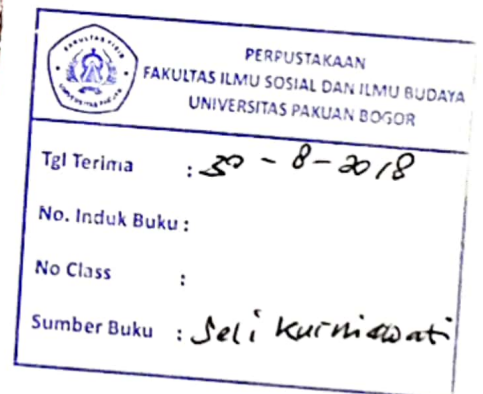 PERPUSTAKAAN
FAKULTAS ILMU SOSIAL DAN ILMU BUDAYA
UNIVERSITAS PAKUAN BOGOR
Tgl Terima : 30 - 8 - 2018
No. Induk Buku :
No Class :
Sumber Buku : Seli Kurniawati